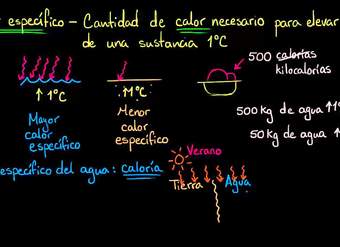 específico – Cantidad de calor necesario para elevar
de una sustancia 1°C
500 calorías
kilocalorías
↑ 1°C
M°C
Mayor
calor
específico
Menor
calor
específico
500 kg de agua ↑1
50 kg de agua ↑
específico del agua: caloría
Verano
Tierra
Agua